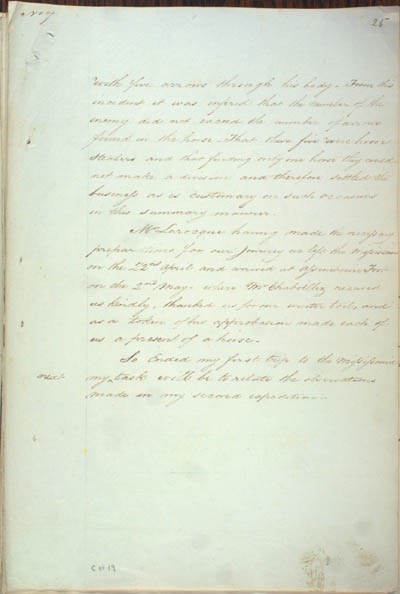 No 7
25
with five arrows through his body. From this
incident it was infered that the number of the
enemy did not exceed the number of arrows
found in the horse. That these five were horse
stealers and that finding only one horse they could
not make a division and therefore settled the
business as is customary on such occasions
in this summary manner.
Mr Larocque having made the necessary
preparations for our Journey we left the Missisourie
on the 22nd April and arrived at Assiniboine Fort
on the 2nd May. where Mr Chaboillez received
us kindly, thanked us for our winter toil, and
as a token of his approbation made each of
us a present of a horse.
So Ended my first trip to the Missisourie
next
my ^ task will be to relate the observations
made in my second expedition.
C H 19